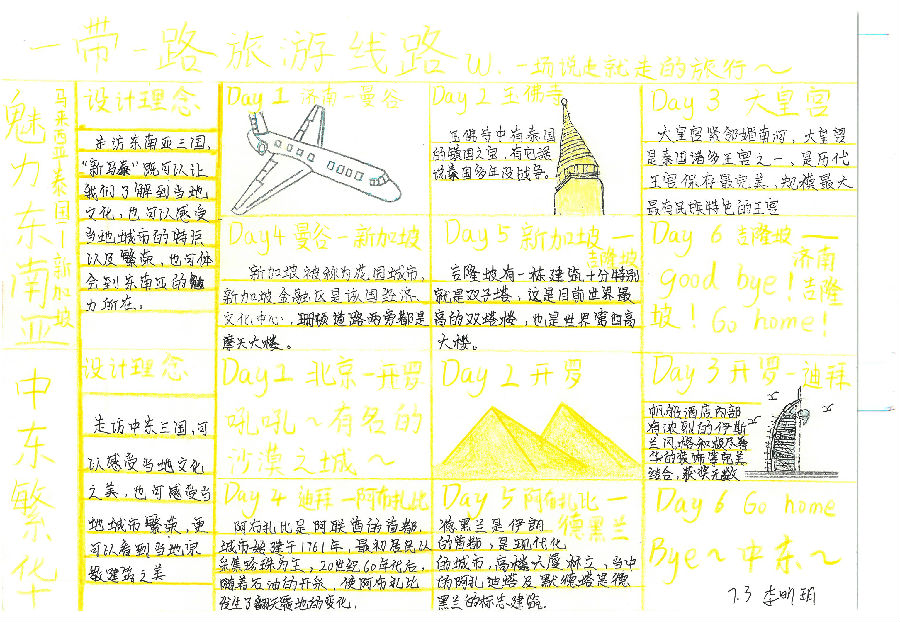 一带一路旅游线路
W.一场说走就走的旅行～
魅力东南亚
马来西亚泰国—新加坡
设计理念
走访东南亚三国,
"新马泰"既可以让
我们了解到当地
文化,也可以感受
当地城市的特质
以及繁荣,也可体
会到东南亚的魅
力所在。
Day 1 济南—曼谷
Day 2 玉佛寺
玉佛寺中有泰国
的镇国之宝,有它
说泰国多年没战争。
Day 3 大皇宫
大皇宫紧邻湄南河,大皇宫
是泰国诸多王宫之一,是历代
王宫保存最完美、规模最大
最有民族特色的王宫
Day4 曼谷—新加坡
新加坡被称为花园城市,
新加坡金融区是该国经济
文化中心,珊顿道路两旁都是
摩天大楼。
Day 5 新加坡—
吉隆坡
吉隆坡有一栋建筑十分特别
就是双子塔,这是目前世界最
高的双塔楼,也是世界第四高
大楼。
Day 6 吉隆坡—
济南
good bye!吉隆
坡!Go home!
中东繁华
设计理念
走访中东三国,可
以感受当地文化
之美,也可感受当
地城市繁荣,更
可以看到当地宗
教建筑之美
Day1 北京—开罗
吼吼～有名的
沙漠之城～
Day 2 开罗
Day 3 开罗—迪拜
帆船酒店内部
有浓烈的伊斯
兰风格和极尽奢
华的装饰堪完美
结合,获奖无数
Day 4 迪拜—阿布扎比
阿布扎比是阿联酋的首都,
城市始建于1761年,最初居民以
采集珍珠为主,20世纪60年代后,
随着石油的开采,使阿布扎比
发生了翻天覆地的变化.
Day 5 阿布扎比—
德黑兰
德黑兰是伊朗
的首都,是现代化
的城市,高楼大厦林立,当中
的阿扎地塔及默德塔是德
黑兰的标志建筑.
Day 6 Go home
Bye～中东～
7.3 李明玥